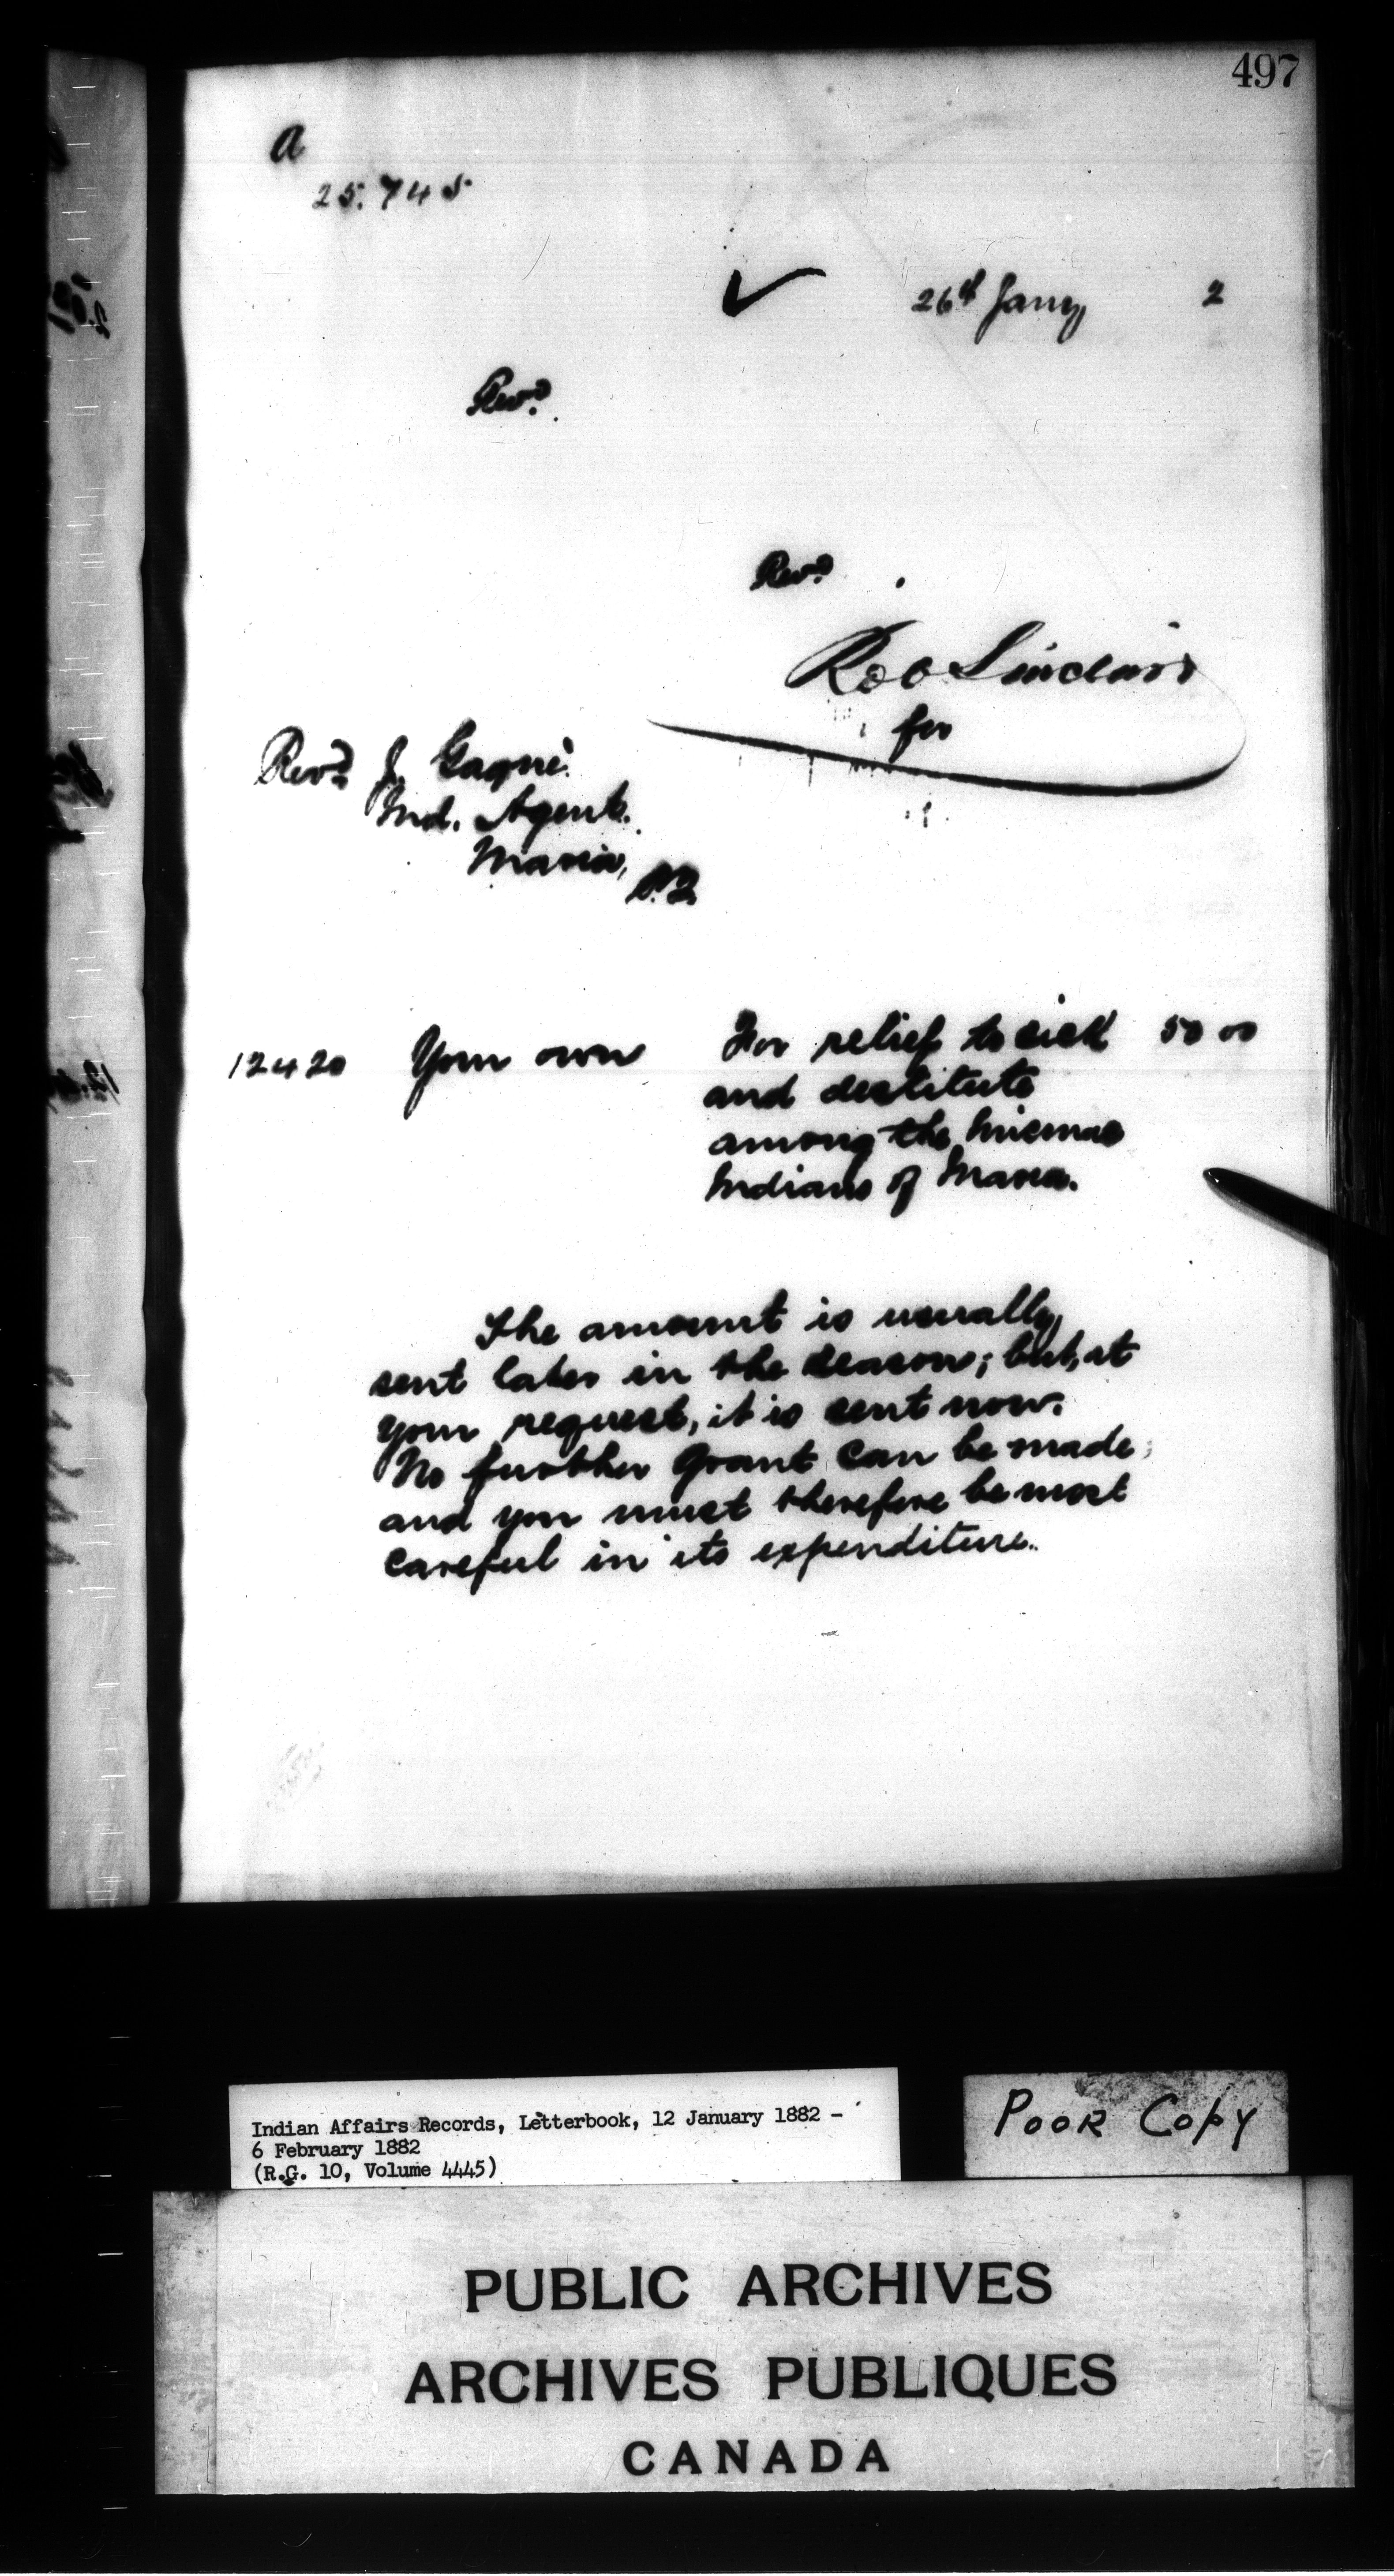 497
a
25.745
26th Jany 2
Revd.
Revd.
Rob Sinclair
for
Revd. J. Gagné
Ind. Agent.
Maria,
P.Q.
12420 Your own For relief to sick 50 00
and destitute
among the Micmac
Indians of Maria.
The amount is usually
sent later in the season; but, at
your request, it is sent now.
No further grant can be made,
and you must therefore be most
careful in its expenditure.
Indian Affairs Records, Letterbook, 12 January 1882 -
6 February 1882
(R.G. 10, Volume 4445)
POOR COPY
PUBLIC ARCHIVES
ARCHIVES PUBLIQUES
CANADA